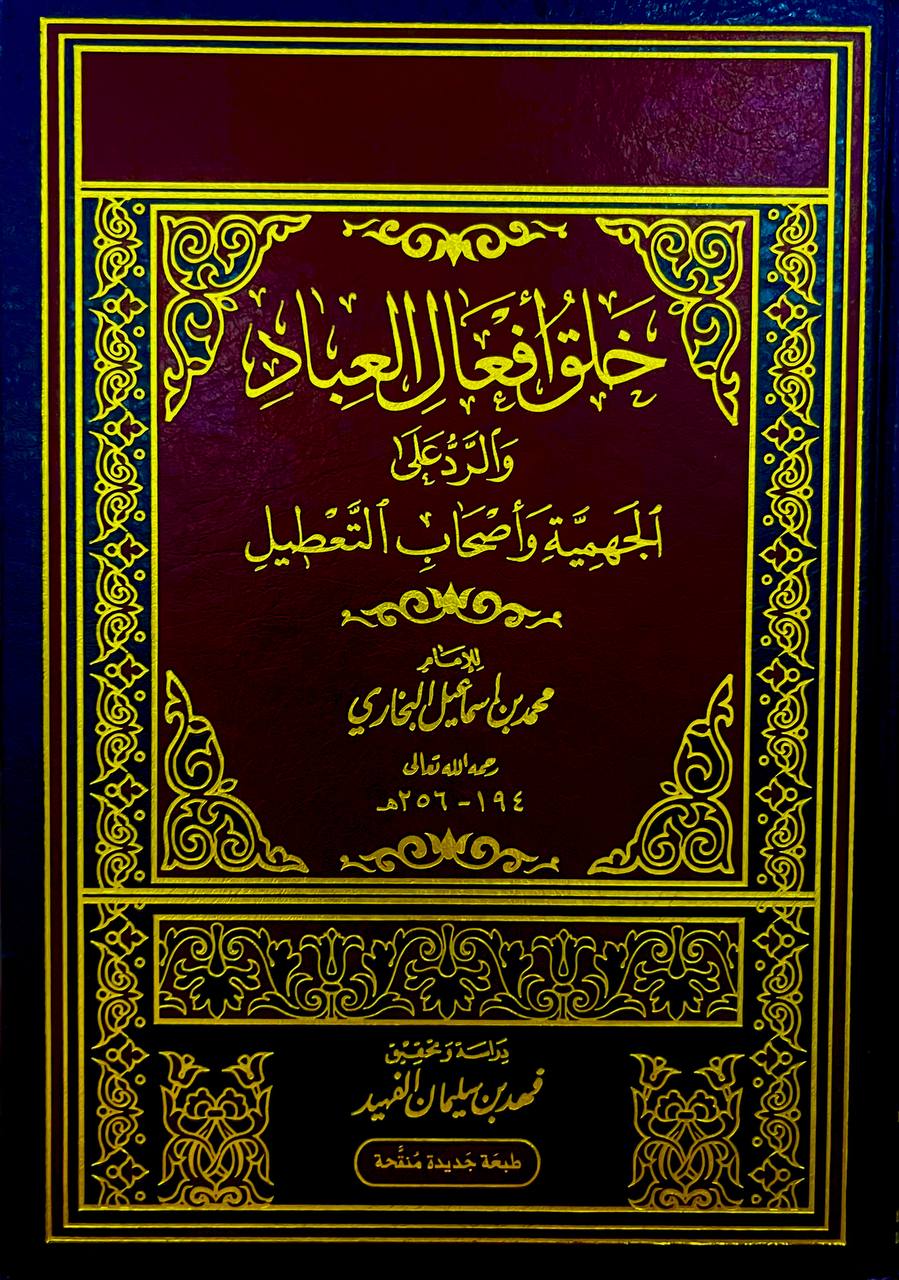 خَلقُ أفْعَالِ العِبادِ
وَالرَّدُّ عَلَى
الجَهمِيَّةِ وَأصْحَابِ التَّعْطِيلِ
لِلإمَامِ
محمد بن إسماعيل البخاري
رحمه الله تعالى
١٩٤ - ٢٥٦هـ
دِرَاسَة وَتحقِيْق
فهد بن سليمان الفهيد
طبعَة جَديدة مُنقَّحة